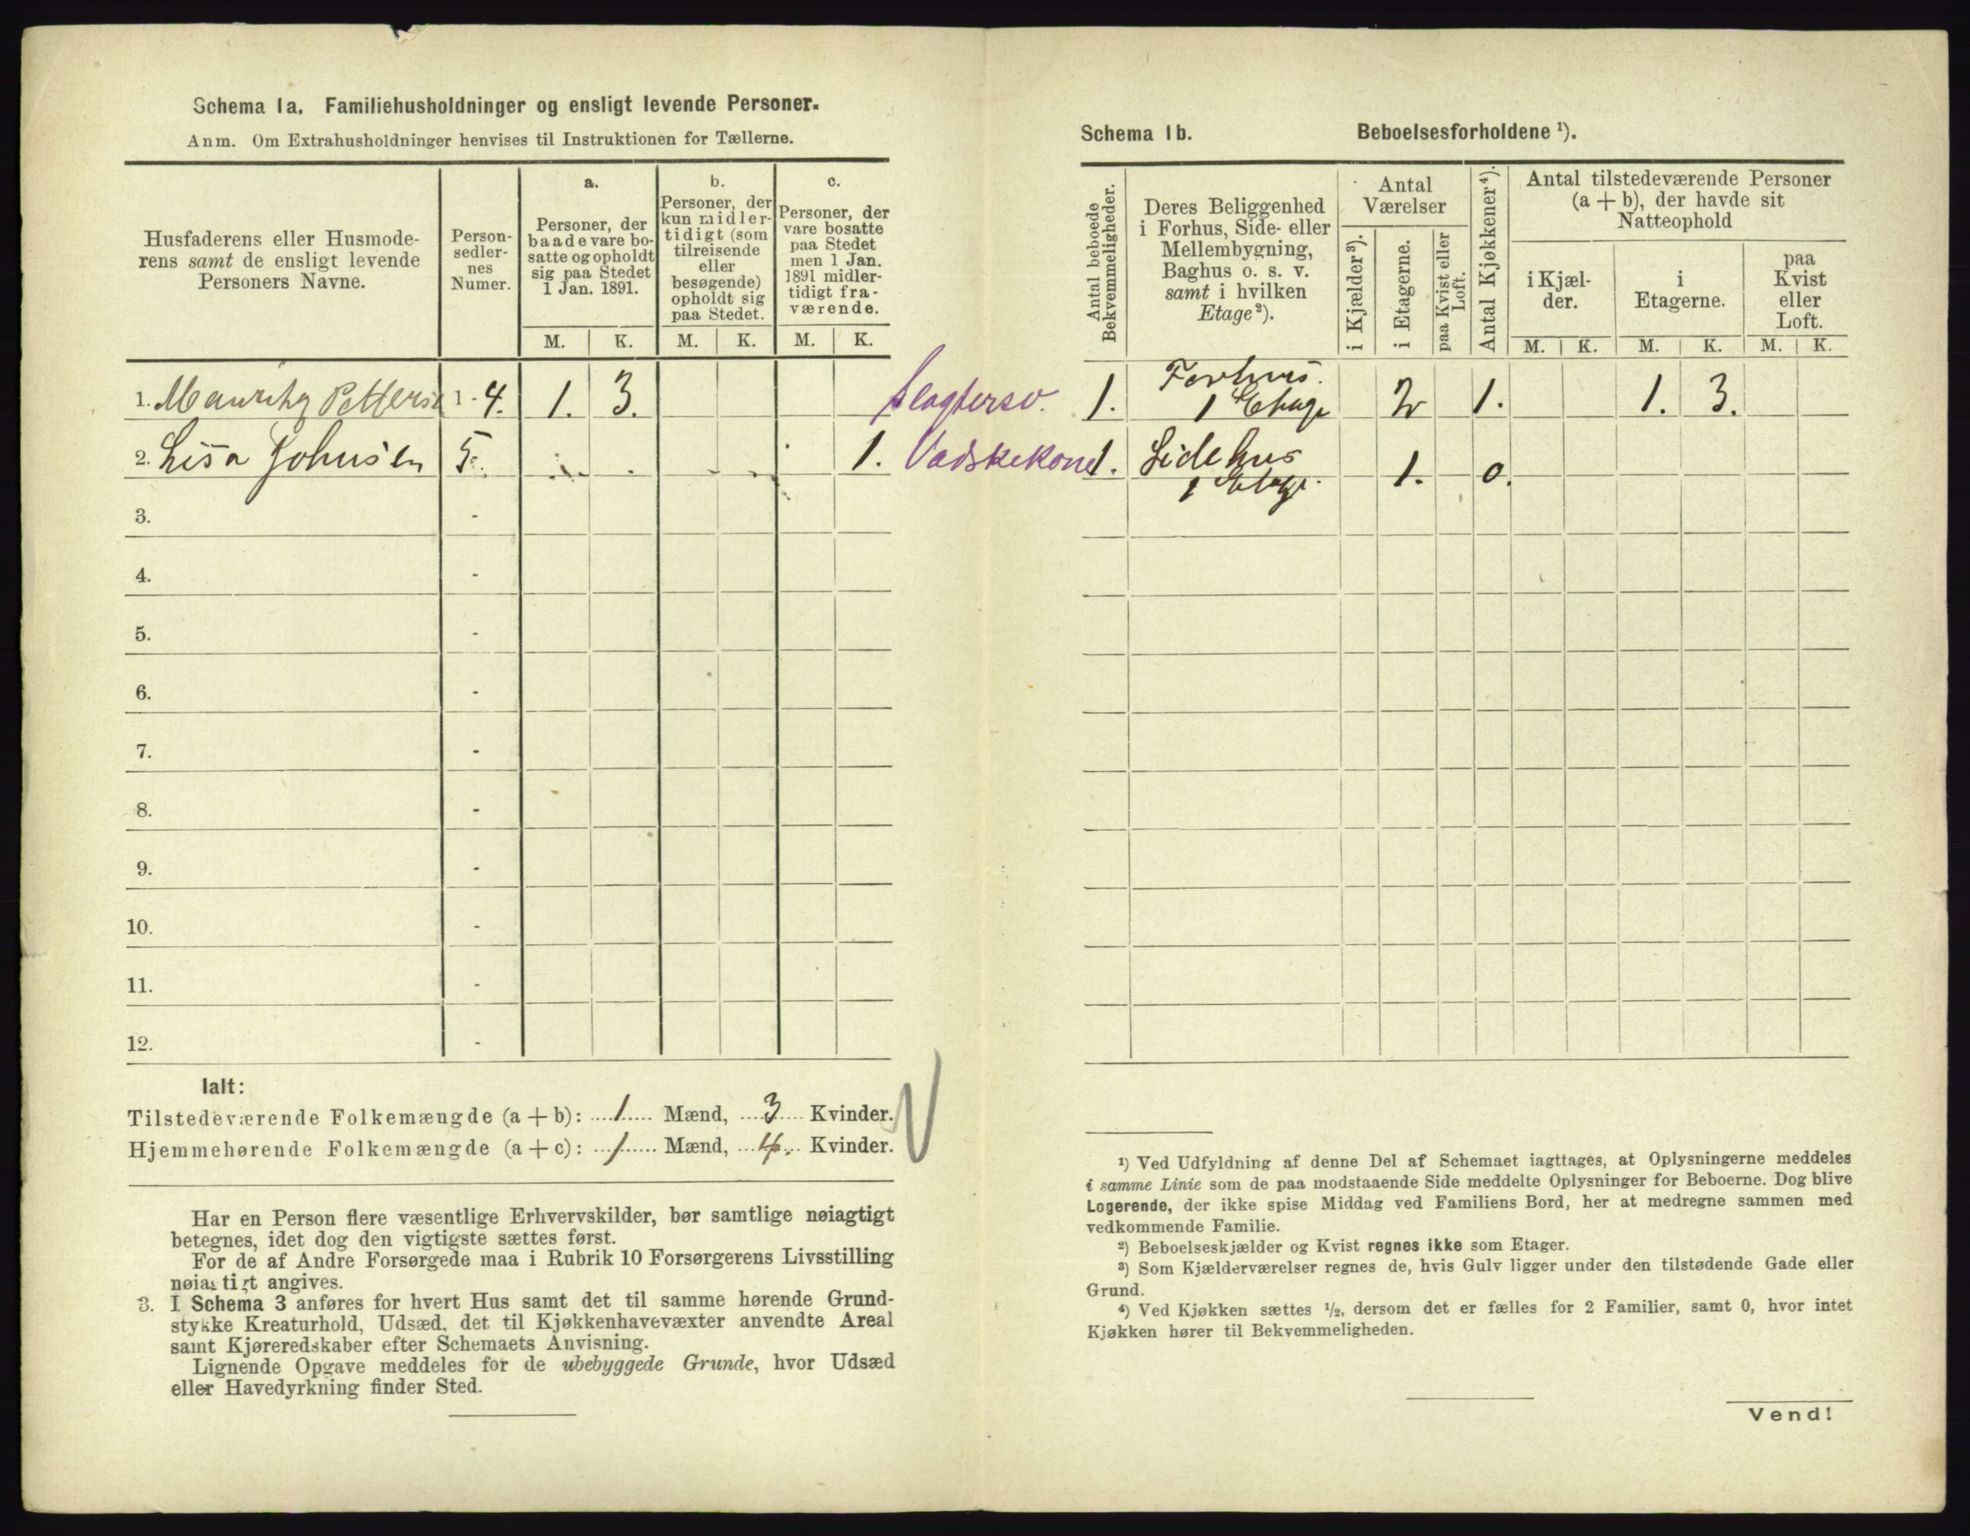 Schema 1a. Familiehusholdninger og ensligt levende Personer.
Anm. Om Extrahusholdninger henvises til Instruktionen for Tællerne.
Husfaderens eller Husmoderens samt de ensligt levende Personers Navne.
Personsedlernes Numer.
a.
Personer, der baade vare bosatte og opholdt sig paa Stedet 1 Jan. 1891.
b.
Personer, der kun midlertidigt (som tilreisende eller besøgende) opholdt sig paa Stedet.
c.
Personer, der vare bosatte paa Stedet men 1 Jan. 1891 midlertidigt fraværende.
M. K. M. K. M. K.
1. Mauritz Petters 1 - 4. 1. 3.
2. Lisa Johnsen 5. 1.
3. -
4. -
5. -
6. -
7. -
8. -
9. -
10. -
11. -
12. -
Ialt:
Tilstedeværende Folkemængde (a + b): 1 Mænd, 3 Kvinder.
Hjemmehørende Folkemængde (a + c): 1 Mænd, 4. Kvinder.
Har en Person flere væsentlige Erhvervskilder, bør samtlige nøiagtigt
betegnes, idet dog den vigtigste sættes først.
For de af Andre Forsørgede maa i Rubrik 10 Forsørgerens Livsstilling
nøiagtigt angives.
3. I Schema 3 anføres for hvert Hus samt det til samme hørende Grund-
stykke Kreaturhold, Udsæd, det til Kjøkkenhavevæxter anvendte Areal
samt Kjøreredskaber efter Schemaets Anvisning.
Lignende Opgave meddeles for de ubebyggede Grunde, hvor Udsæd
eller Havedyrkning finder Sted.
Schema 1b. Beboelsesforholdene ¹).
Antal beboede Bekvemmeligheder.
Deres Beliggenhed i Forhus, Side- eller Mellembygning, Baghus o. s. v. samt i hvilken Etage²).
Antal Værelser
i Kjælder³).
i Etagerne.
paa Kvist eller Loft.
Antal Kjøkkener⁴).
Antal tilstedeværende Personer (a + b), der havde sit Natteophold
i Kjælder.
i Etagerne.
paa Kvist eller Loft.
M. K. M. K. M. K.
slagtersv. 1. Forhus. 1 Etage 2 1. 1. 3.
Vadskekone 1. Sidehus 1 Etage. 1. 0.
¹) Ved Udfyldning af denne Del af Schemaet iagttages, at Oplysningerne meddeles
i samme Linie som de paa modstaaende Side meddelte Oplysninger for Beboerne. Dog blive
Logerende, der ikke spise Middag ved Familiens Bord, her at medregne sammen med
vedkommende Familie.
²) Beboelseskjælder og Kvist regnes ikke som Etager.
³) Som Kjælderværelser regnes de, hvis Gulv ligger under den tilstødende Gade eller
Grund.
⁴) Ved Kjøkken sættes ½, dersom det er fælles for 2 Familier, samt 0, hvor intet
Kjøkken hører til Bekvemmeligheden.
Vend!